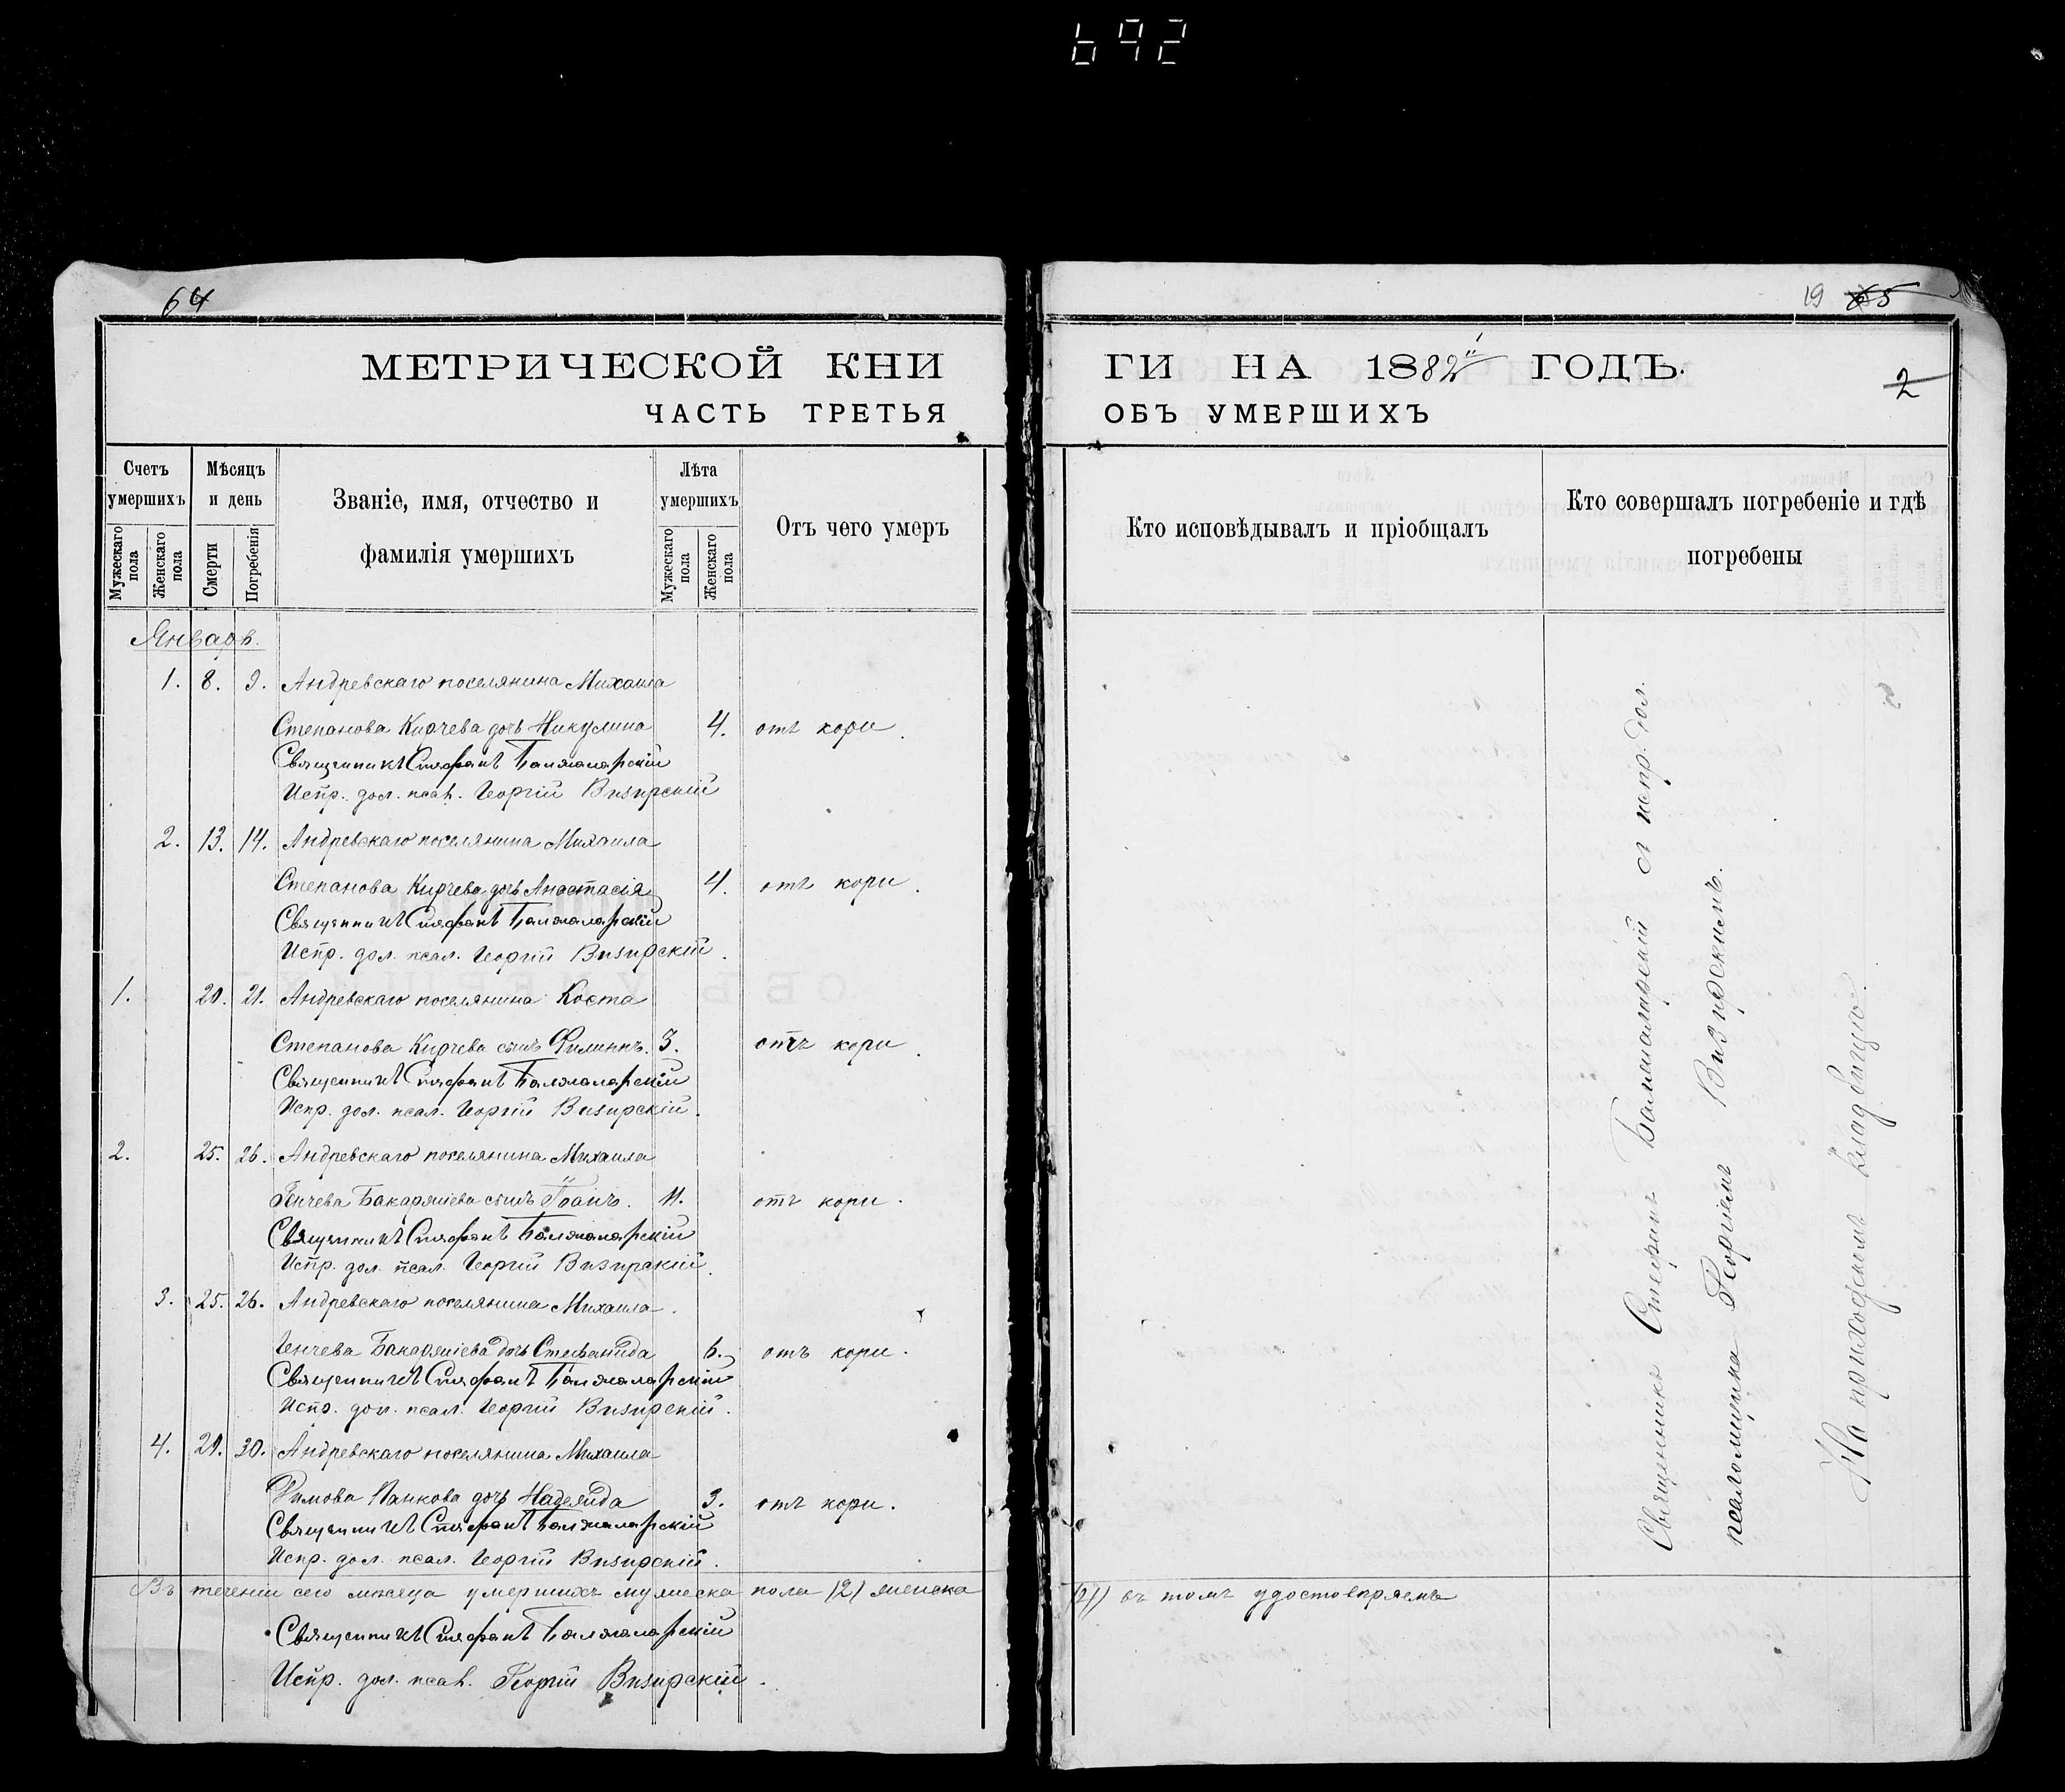 692
64
МЕТРИЧЕСКОЙ КНИ
ЧАСТЬ ТРЕТЬЯ
Счетъ умершихъ
Мужескаго пола
Женскаго пола
Мѣсяцъ и день
Смерти
Погребенія
Званіе, имя, отчество и
фамилія умершихъ
Лѣта умершихъ
Мужескаго пола
Женскаго пола
Отъ чего умеръ
Январь.
1. 8. 9. Андревскаго поселянина Михаила
Степанова Кирчева дочь Никулина 4. отъ кори.
Священникъ Стефанъ Балжаларскій
Испр. дол. псал. Георгій Визирскій
2. 13. 14. Андревскаго поселянина Михаила
Степанова Кирчева дочь Анастасія 4. отъ кори.
Священникъ Стефанъ Балжаларскій
Испр. дол. псал. Георгій Визирскій.
1. 20. 21. Андревскаго поселянина Коста
Степанова Кирчева сынъ Филиппъ. 3. отъ кори.
Священникъ Стефанъ Балжаларскій
Испр. дол. псал. Георгій Визирскій.
2. 25. 26. Андревскаго поселянина Михаила
Генчева сынъ Іоанъ. 11. отъ кори.
Священникъ Стефанъ Балжаларскій
Испр. дол. псал. Георгій Визирскій.
3. 25. 26. Андревскаго поселянина Михаила.
Генчева дочь Стефанида 6. отъ кори.
Священникъ Стефанъ Балжаларскій
Испр. дол. псал. Георгій Визирскій.
4. 29. 30. Андревскаго поселянина Михаила
Панкова дочь Надежда 3. отъ кори.
Священникъ Стефанъ Балжаларскій
Испр. дол. псал. Георгій Визирскій.
Въ теченіи сего мѣсяца умершихъ мужеска пола (2) женска
Священникъ Стефанъ Балжаларскій
Испр. дол. псал. Георгій Визирскій.
19 65
ГИ НА 1882й ГОДЪ.
2
ОБЪ УМЕРШИХЪ
Кто исповѣдывалъ и пріобщалъ
Кто совершалъ погребеніе и гдѣ
погребены
Священникъ Стефанъ Балжаларскій съ испр. дол.
псаломщика Георгіемъ Визирскимъ.
На приходскомъ кладбищѣ.
(4) въ томъ удостовѣряемъ